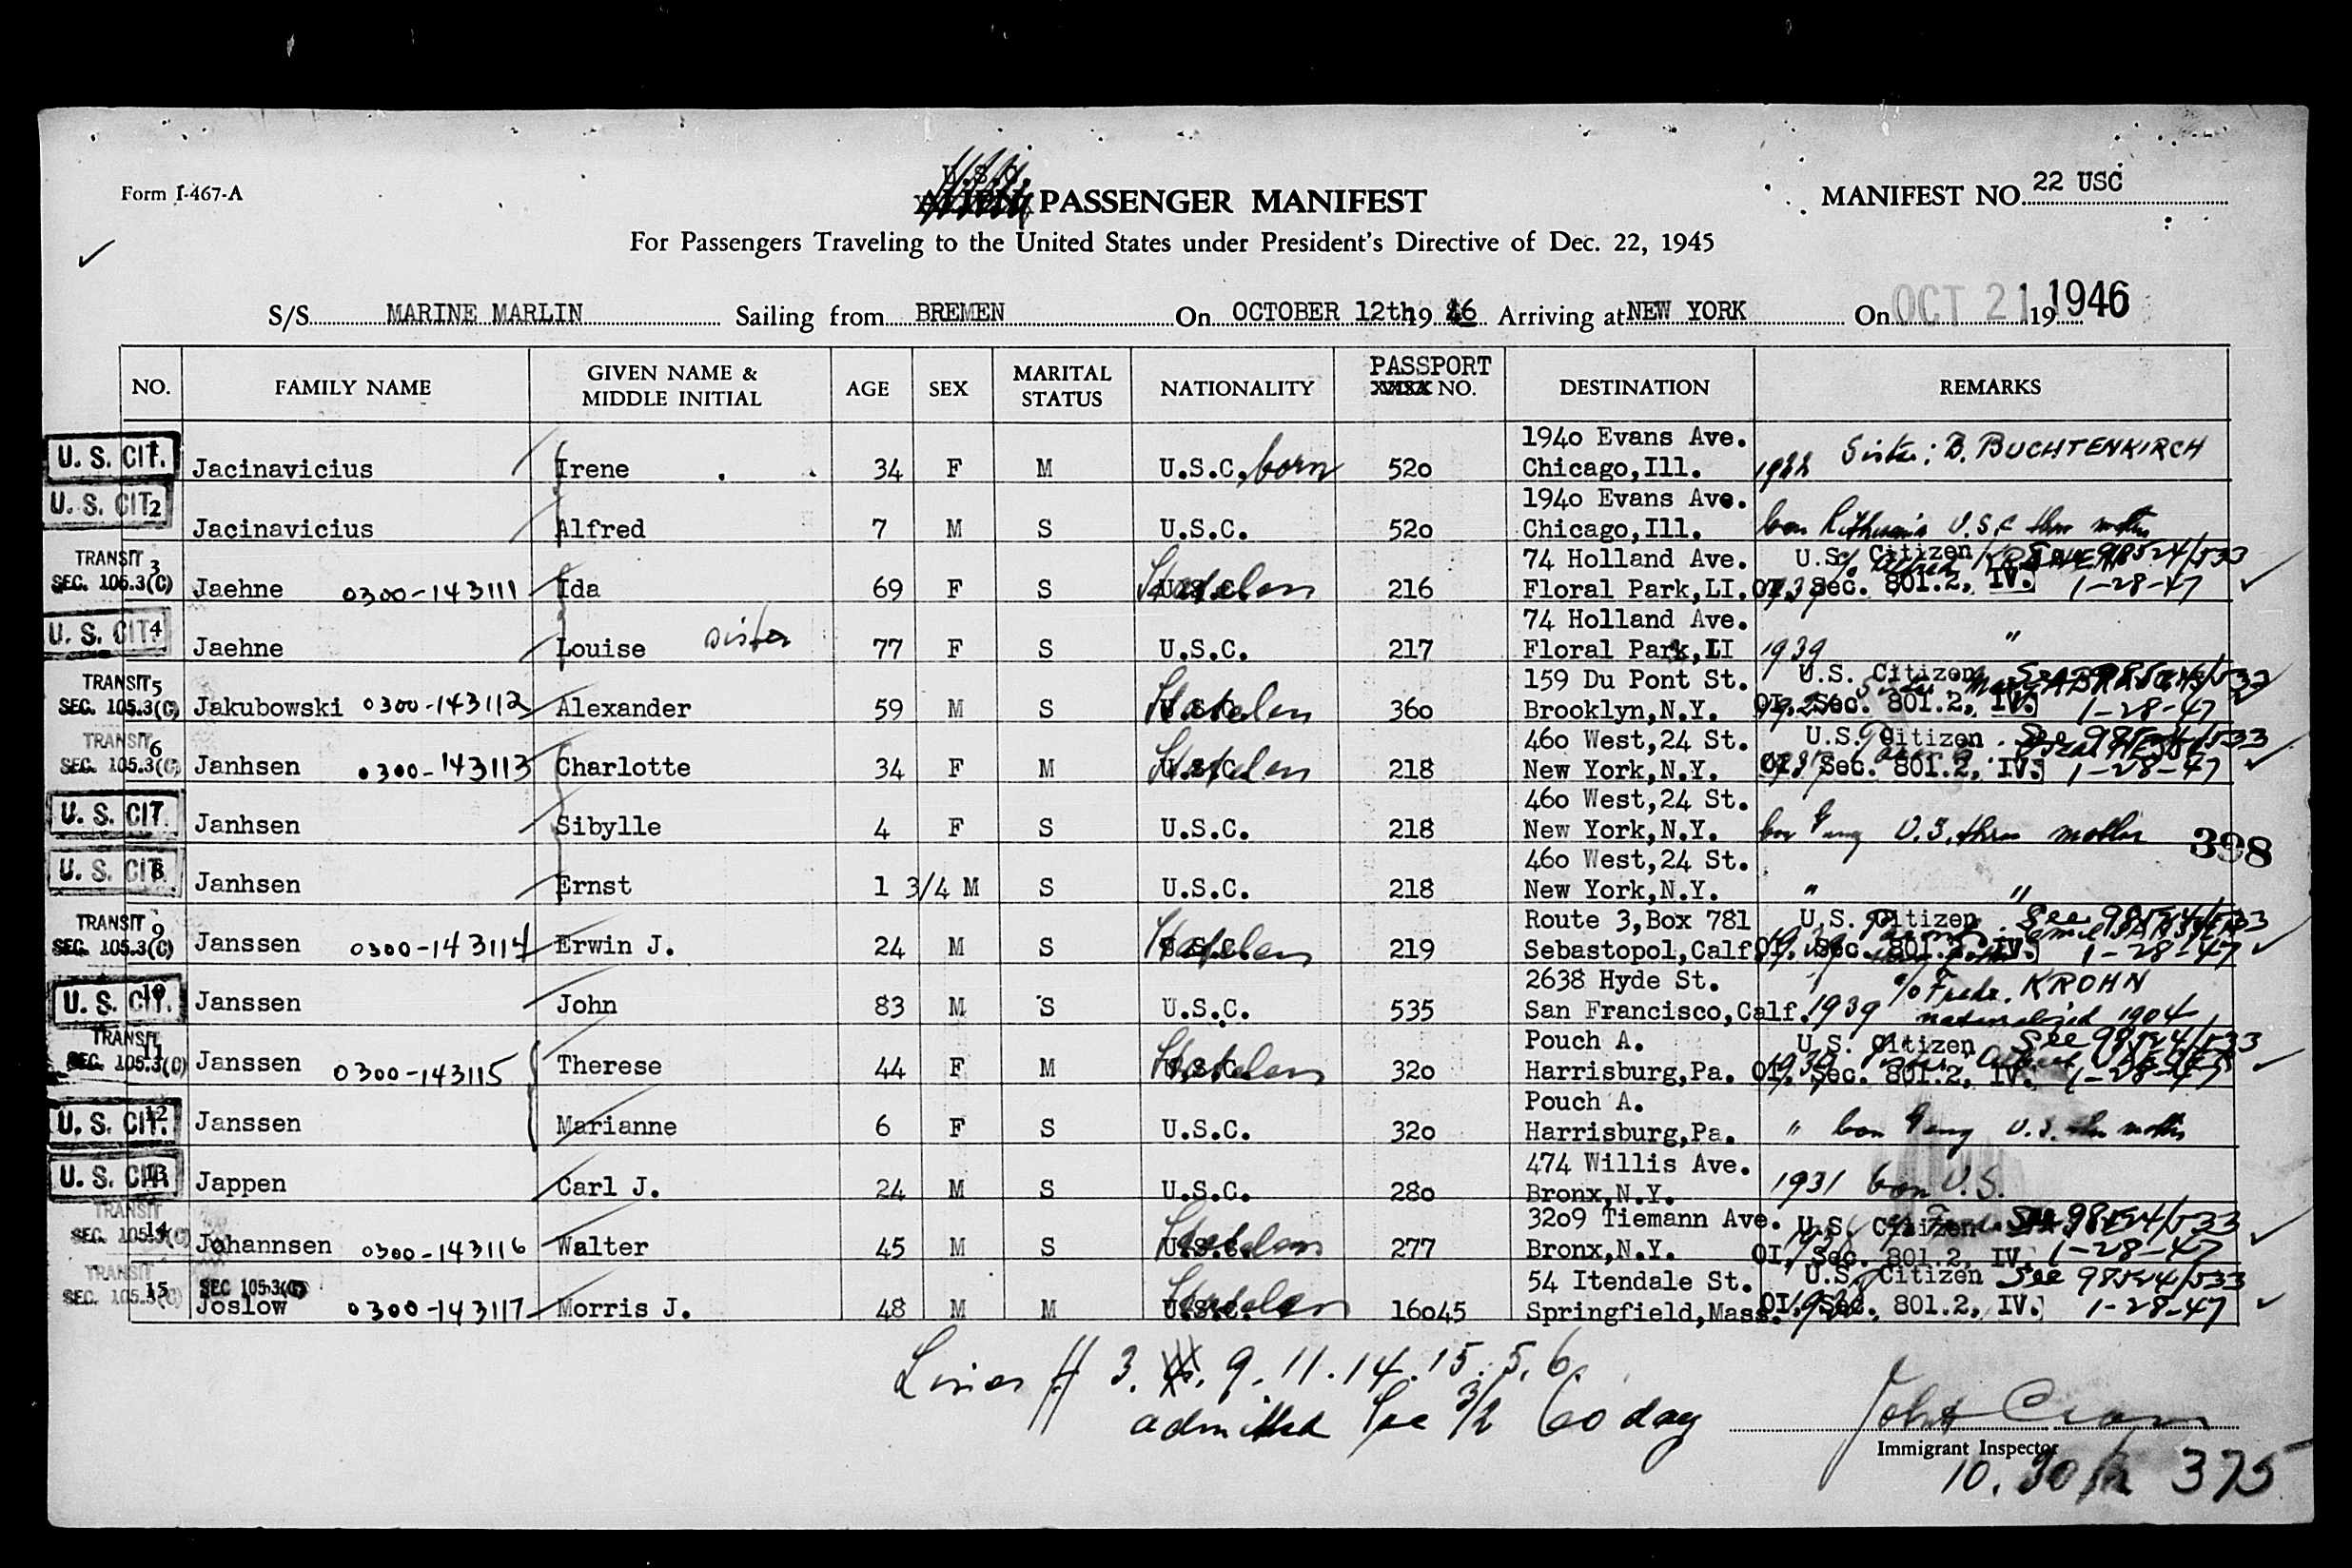 Form I-467-A
U.S.C.
PASSENGER MANIFEST
MANIFEST NO. 22 USC
For Passengers Traveling to the United States under President's Directive of Dec. 22, 1945
S/S MARINE MARLIN Sailing from BREMEN On OCTOBER 12th 1946 Arriving at NEW YORK On OCT 21 1946
NO. FAMILY NAME GIVEN NAME & MIDDLE INITIAL AGE SEX MARITAL STATUS NATIONALITY PASSPORT NO. DESTINATION REMARKS
U. S. CIT. 1 Jacinavicius Irene 34 F M U.S.C. born 520 1940 Evans Ave. Chicago,Ill. Sister: B. BUCHTENKIRCH
U. S. CIT. 2 Jacinavicius Alfred 7 M S U.S.C. 520 1940 Evans Ave. Chicago,Ill. born Lithuania U.S.C thru mother
TRANSIT SEC. 105.3(C) 3 Jaehne 0300-143111 Ida 69 F S U.S.C. Stateless 216 74 Holland Ave. Floral Park,LI. U.S. Citizen See 98524/533 OI. Sec. 801.2, IV. 1-28-47
U. S. CIT. 4 Jaehne Louise sister 77 F S U.S.C. 217 74 Holland Ave. Floral Park,LI 1939 "
TRANSIT SEC. 105.3(C) 5 Jakubowski 0300-143112 Alexander 59 M S U.S.C. Stateless 360 159 Du Pont St. Brooklyn,N.Y. U.S. Citizen See 98524/533 OI. Sec. 801.2, IV. 1-28-47
TRANSIT SEC. 105.3(C) 6 Janhsen 0300-143113 Charlotte 34 F M U.S.C. Stateless 218 460 West,24 St. New York,N.Y. U.S. Citizen See 98524/533 OI. Sec. 801.2, IV. 1-28-47
U. S. CIT. 7 Janhsen Sibylle 4 F S U.S.C. 218 460 West,24 St. New York,N.Y. born Germany U.S. thru mother
398
U. S. CIT. 8 Janhsen Ernst 1 3/4 M S U.S.C. 218 460 West,24 St. New York,N.Y. " "
TRANSIT SEC. 105.3(C) 9 Janssen 0300-143114 Erwin J. 24 M S U.S.C. Stateless 219 Route 3,Box 781 Sebastopol,Calf. U.S. Citizen See 98524/533 OI. Sec. 801.2, IV. 1-28-47
U. S. CIT. 10 Janssen John 83 M S U.S.C. 535 2638 Hyde St. San Francisco,Calf. 1939 c/o Fredr. KROHN naturalized 1904
TRANSIT SEC. 105.3(C) 11 Janssen 0300-143115 Therese 44 F M U.S.C. Stateless 320 Pouch A. Harrisburg,Pa. U.S. Citizen See 98524/533 OI. Sec. 801.2, IV. 1-28-47
U. S. CIT. 12 Janssen Marianne 6 F S U.S.C. 320 Pouch A. Harrisburg,Pa. " born Germany U.S. thru mother
U. S. CIT. 13 Jappen Carl J. 24 M S U.S.C. 280 474 Willis Ave. Bronx,N.Y. 1931 born U.S.
TRANSIT SEC. 105.3(C) 14 Johannsen 0300-143116 Walter 45 M S U.S.C. Stateless 277 3209 Tiemann Ave. Bronx,N.Y. U.S. Citizen See 98524/533 OI. Sec. 801.2, IV. 1-28-47
TRANSIT SEC. 105.3(C) 15 SEC 105.3(C) Joslow 0300-143117 Morris J. 48 M M U.S.C. Stateless 16045 54 Itendale St. Springfield,Mass. U.S. Citizen See 98524/533 OI. Sec. 801.2, IV. 1-28-47
Lines # 3. 9. 11. 14. 15. 5. 6.
admitted 60 day
Immigrant Inspector
10. 30 375